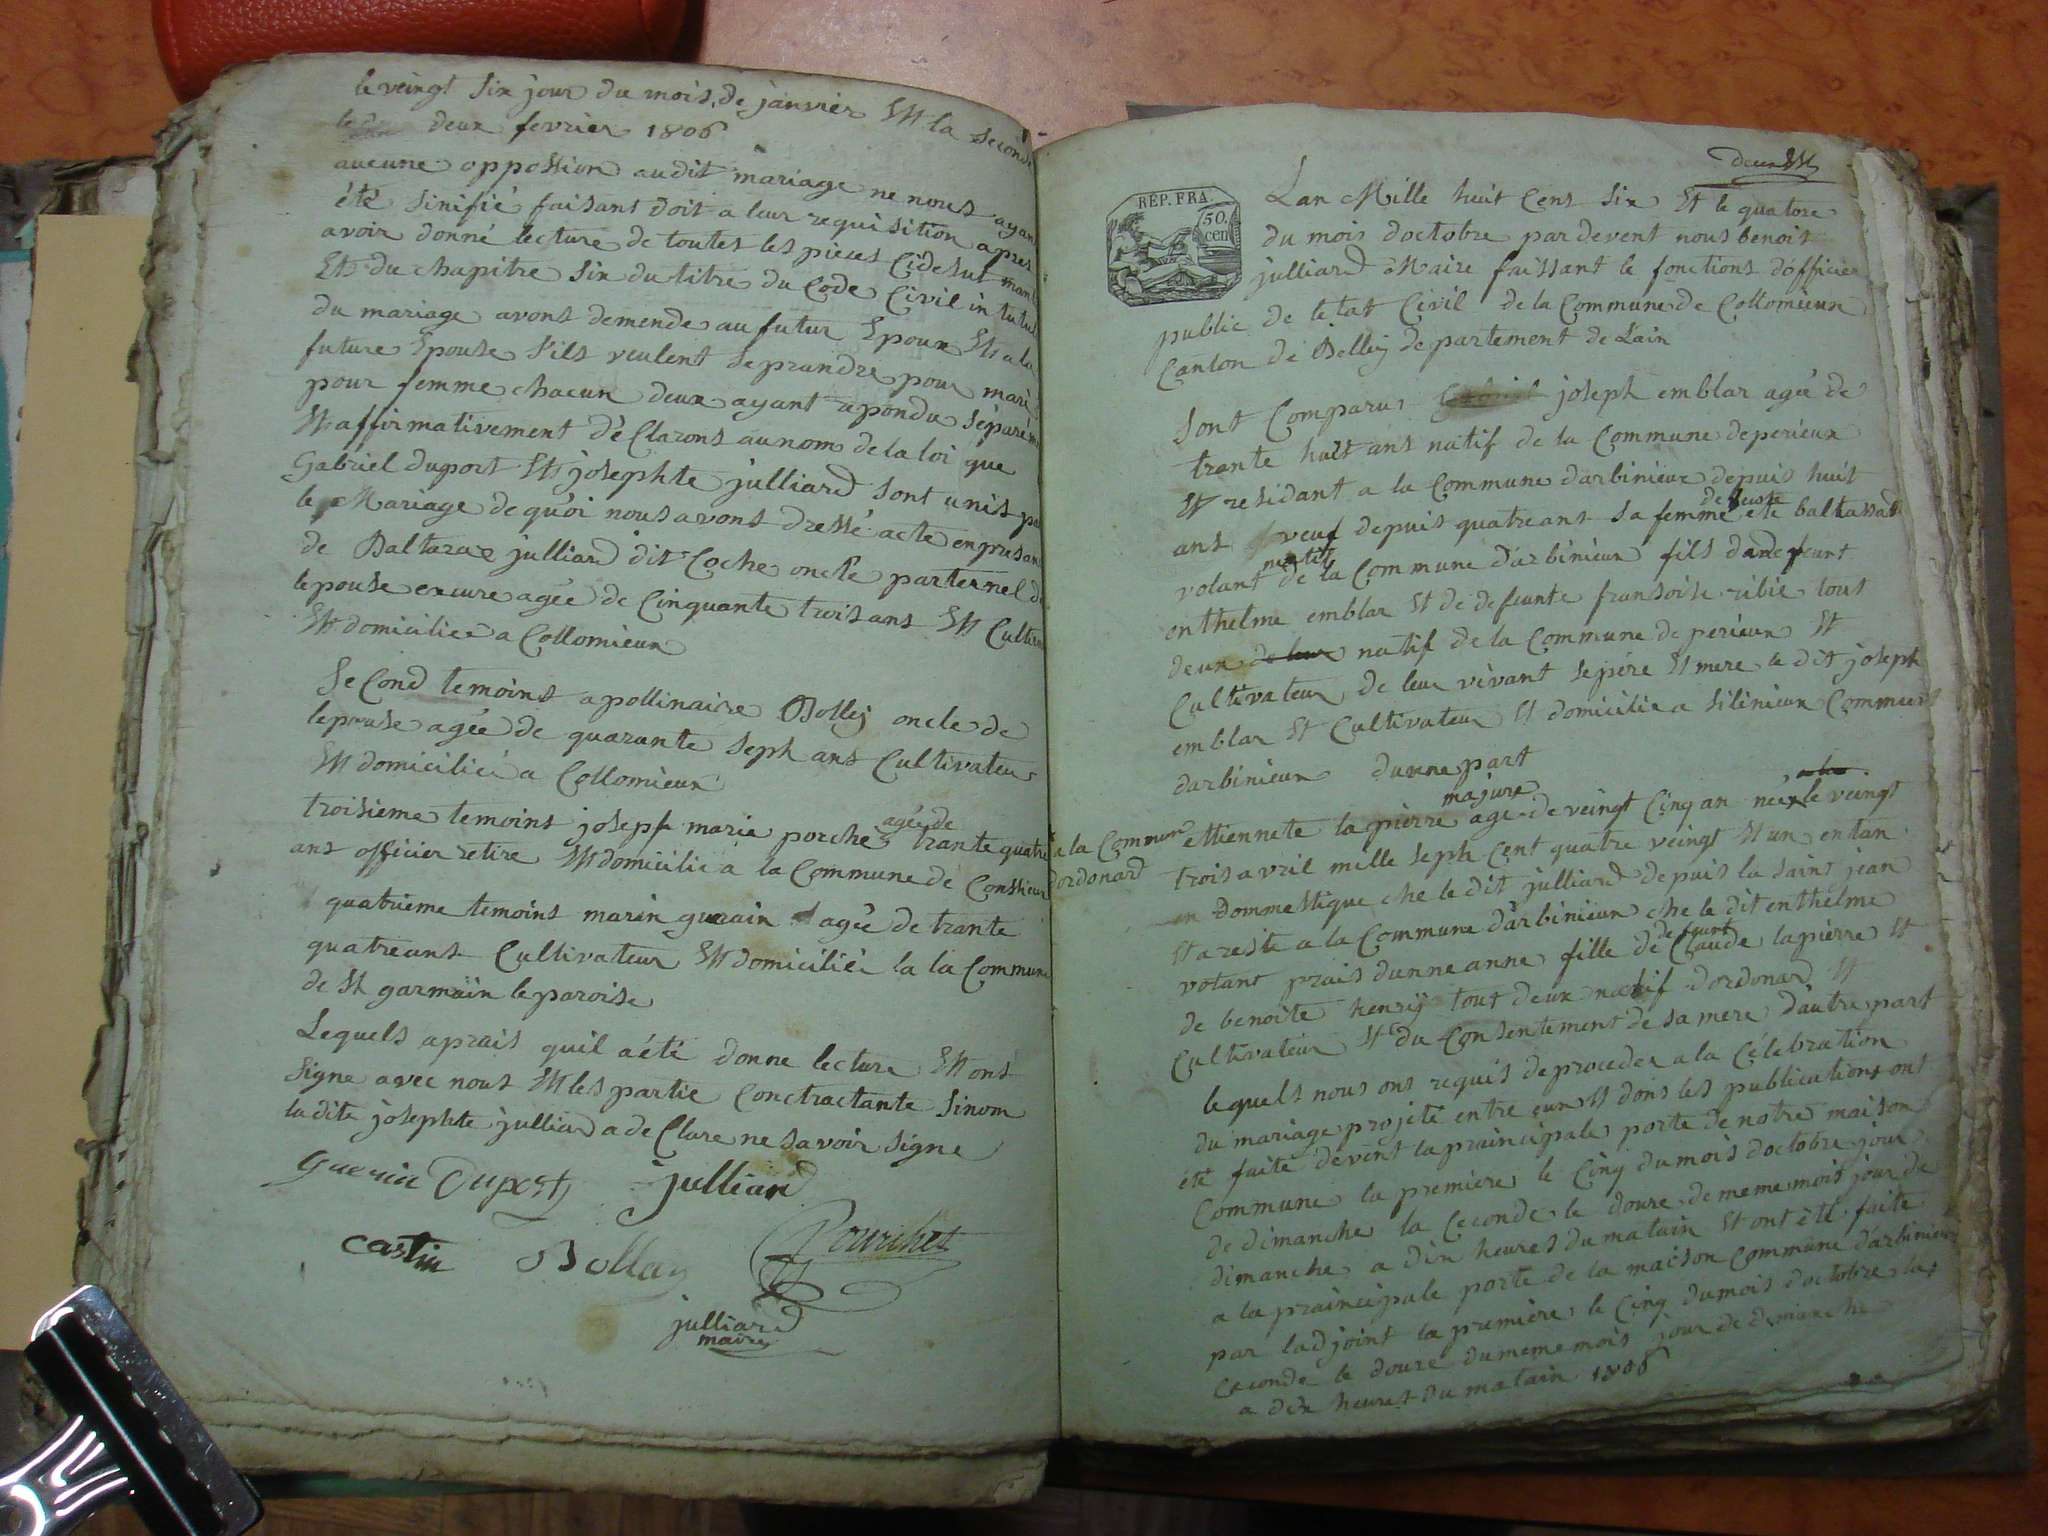 le veingt six jour du mois de janvier Et la seconde
le deux fevrier 1806
aucune oppossion audit mariage ne nous ayan
été sinifié faisant doit a leur requisition apres
avoir donné lecture de toutes les pieces Cidesus man
Et du chapitre six du titre du Code Civil intutus
du mariage avons demende au futur Epoux Et a la
future Epouse s'ils veulent se prandre pour mari
pour femme chacun deux ayant repondu séparém
Et affirmativement déClarons au nom de la loi que
Gabriel duport Et josephte julliard sont unis par
le Mariage de quoi nous avons dressé acte en presan
de Baltazar julliard dit Coche oncle parternel de
lepouse encure agée de Cinquante trois ans Et Cultiv
Et domiciliee a Collomieux
SeCond temoins apollinaire Bolley oncle de
lepouse agée de quarante seph ans Cultivateur
Et domicilié a Collomieux
agée de
troisieme temoins joseph marie porche trante quatre
ans officier retire Et domicilie a la Commune de Conshieux
quatrieme temoins marin guerain agée de trante
quatre ans Cultivateur Et domicilié la la Commune
de St garmain le paroise
Lequels aprais quil a été donne lecture Et ont
signe avec nous Et les partie Conctractante sinom
ladite josephte julliard a deClare ne savoir signe
Guerin Duport julliard
castin Bollay Pourchet
julliard
maire
deux Et
REP. FRA.
50.
cen
Lan Mille huit Cens six Et le quatore
du mois doctobre par devent nous benoit
julliard Maire faissant le fonctions dofficier
public de letat Civil de la Commune de Collomieux
Canton de Belley departement de Lain
Sont Comparus joseph emblar ageé de
trante huit ans natif de la Commune de perieux
Et residant a la Commune darbinieux depuis huit
ans veuf depuis quatre ans sa femme ete baltassard
natif
volant de la Commune darbinieux fils de feunt
enthelme emblar Et de defeunte fransoise ribie tous
deux de leur natif de la Commune de perieux Et
Cultivateur de leur vivant se pére Et mere le dit joseph
emblar Et Cultivateur Et domicilie a silinieux Commune
darbinieux dunne part
majure
a la Commune
dordonard
ettiennete la pierre age de veingt Cinq an neé le veingt
trois avril mille seph Cent quatre veingt Et un en tan
en dommestique che le dit julliard depuis la saint jean
Et a reste a la Commune darbinieux che le dit enthelme
defeunt
volant prais dunne anne fille de Claude lapierre Et
de benoite henry tout deux natif dordonard Et
Cultivateur Et du Consentement de sa mere dautre part
lequels nous ont requis de proceder a la Célébration
du mariage projeté entre eux Et dons les publications ont
été faite devent la praincipale porte de notre maison
Commune la premiere le Cinq du mois doctobre jour
de dimanche la Ceconde le doure de meme mois jour de
dimanche a dix heures du matain Et ont été faite
a la praincipale porte de la maison Commune darbinieux
par ladjoint la premiere le Cinq du mois doctobre la
Ceconde le doure du meme mois jour de dimanche
a dix heures du matain 1806